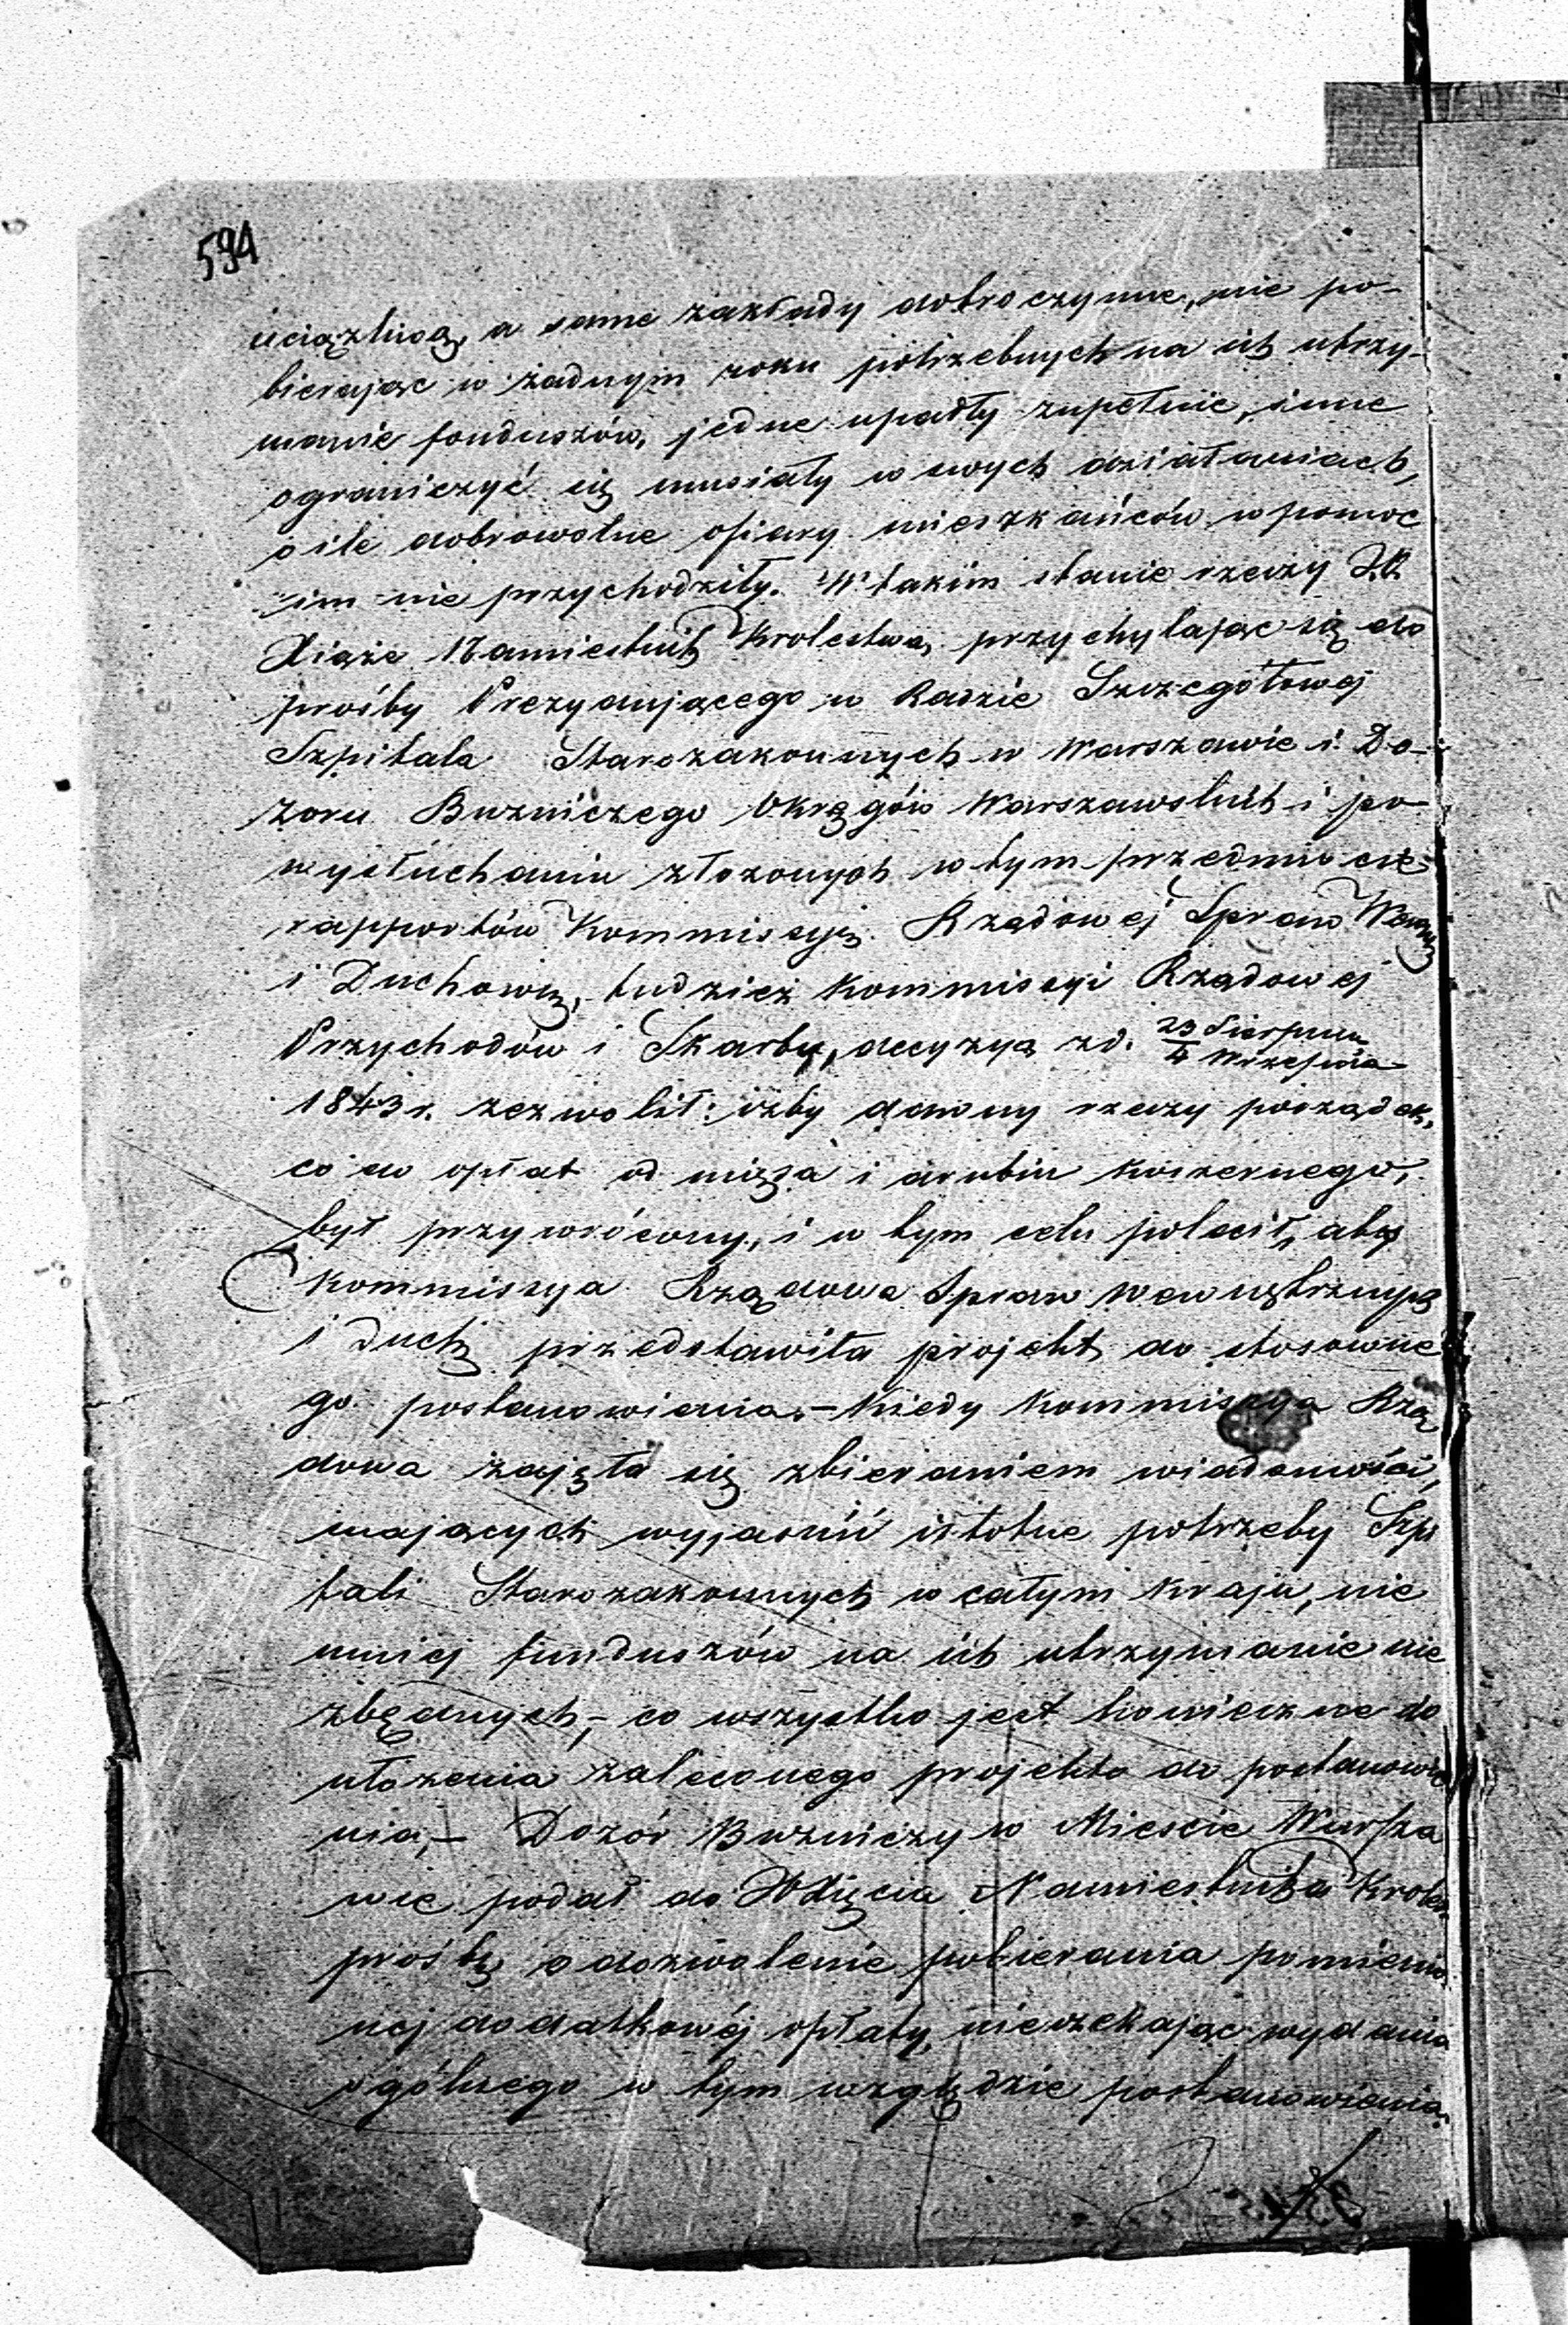 594
uciążliwą, a same zakłady dobroczynne, nie po-
bierając w żadnym roku potrzebnych na ich utrzy-
manie fonduszów, jedne upadły zupełnie, inne
ograniczyć się musiały w swych działaniach,
o ile dobrowolne ofiary mieszkańców w pomoc
im nie przychodziły. W takim stanie rzeczy J.O.
Xiąże Namiestnik Krolestwa, przychylając się do
prośby Prezydującego w Radzie Szczegółowej
Szpitala Starozakonnych w Warszawie i Do-
zoru Bużniczego Okręgów Warszawskich i po
wysłuchaniu złożonych w tym przedmiocie
rapportów Kommissyi Rządowej Spraw Wewn
i Duchown, tudzież Kommissyi Rządowej
Przychodów i Skarbu, decyzyą z d. 23 Sierpnia
4 Września
1843 r. zezwolił: iżby dawny rzeczy porządek,
co do opłat od mięsa i drobiu koszernego,
był przywrócony, i w tym celu polecił, aby
Kommissya Rządowa Spraw Wewnętrznych
i Duch przedstawiła projekt do stosowne
go postanowienia.- Kiedy Kommissya Rzą
dowa zajęła się zbieraniem wiadomości,
mających wyjaśnić istotne potrzeby Szpi
tali Starozakonnych w całym kraju, nie
mniej funduszów na ich utrzymanie nie
zbędnych,- co wszystko jest konieczne do
ułożenia zaleconego projektu do postanowie
nia,- Dozór Bużniczy w Mieście Warsza
wie podał do JOXięcia Namiestnika Króles
prośbę o dozwolenie pobierania pomienio
nej dodatkowéj opłaty, nieczekając wydania
ogólnego w tym względzie postanowienia.